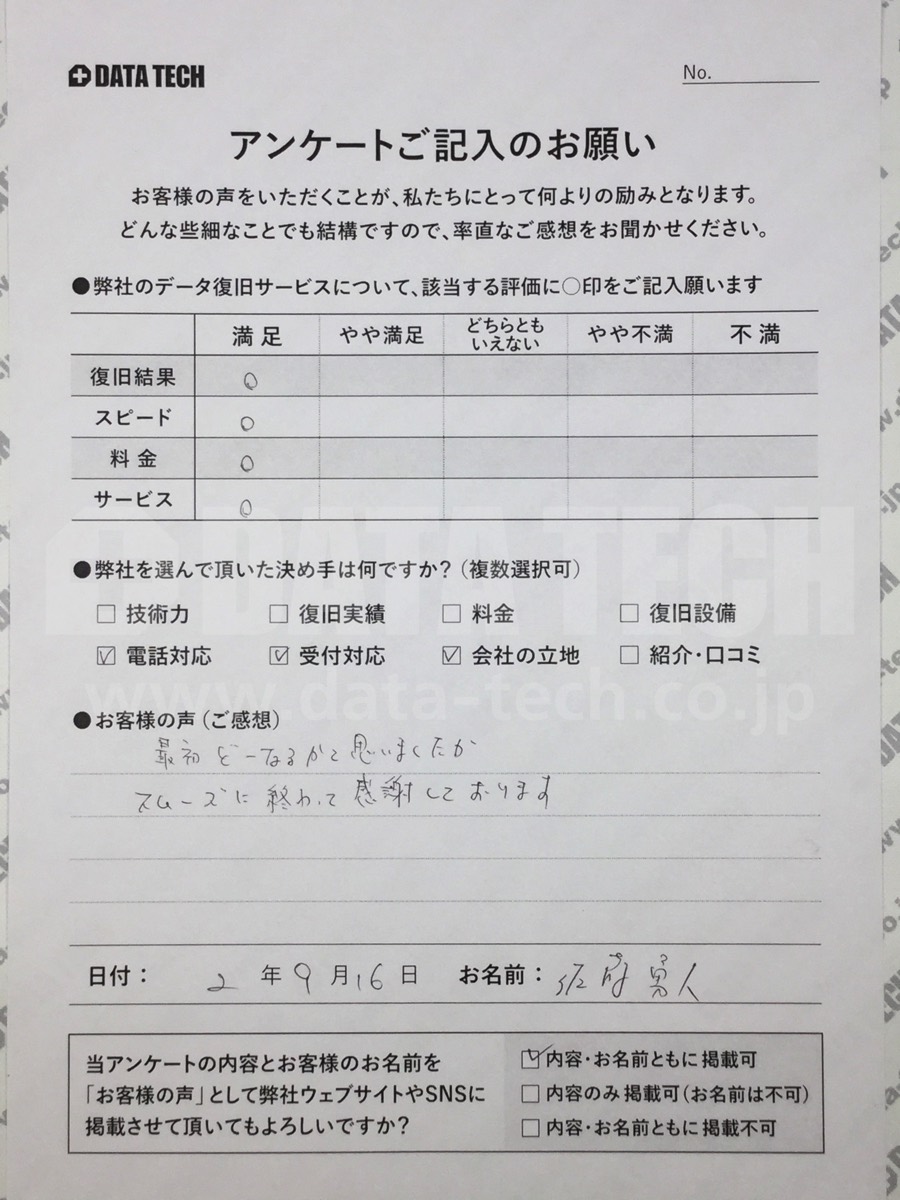 DATA TECH
No.
アンケートご記入のお願い
お客様の声をいただくことが、私たちにとって何よりの励みとなります。
どんな些細なことでも結構ですので、率直なご感想をお聞かせください。
●弊社のデータ復旧サービスについて、該当する評価に○印をご記入願います
満足 やや満足 どちらとも いえない やや不満 不満
復旧結果 ○
スピード ○
料金 ○
サービス ○
●弊社を選んで頂いた決め手は何ですか?(複数選択可)
□ 技術力 □ 復旧実績 □ 料金 □ 復旧設備
☑ 電話対応 ☑ 受付対応 ☑ 会社の立地 □ 紹介・口コミ
DATA TECH
www.data-tech.co.jp
●お客様の声(ご感想)
最初どーなるかと思いましたが
スムーズに終わって感謝しております
日付: 2 年 9 月 16 日 お名前: 佐 人
当アンケートの内容とお客様のお名前を
「お客様の声」として弊社ウェブサイトやSNSに
掲載させて頂いてもよろしいですか?
☑ 内容・お名前ともに掲載可
□ 内容のみ掲載可(お名前は不可)
□ 内容・お名前ともに掲載不可